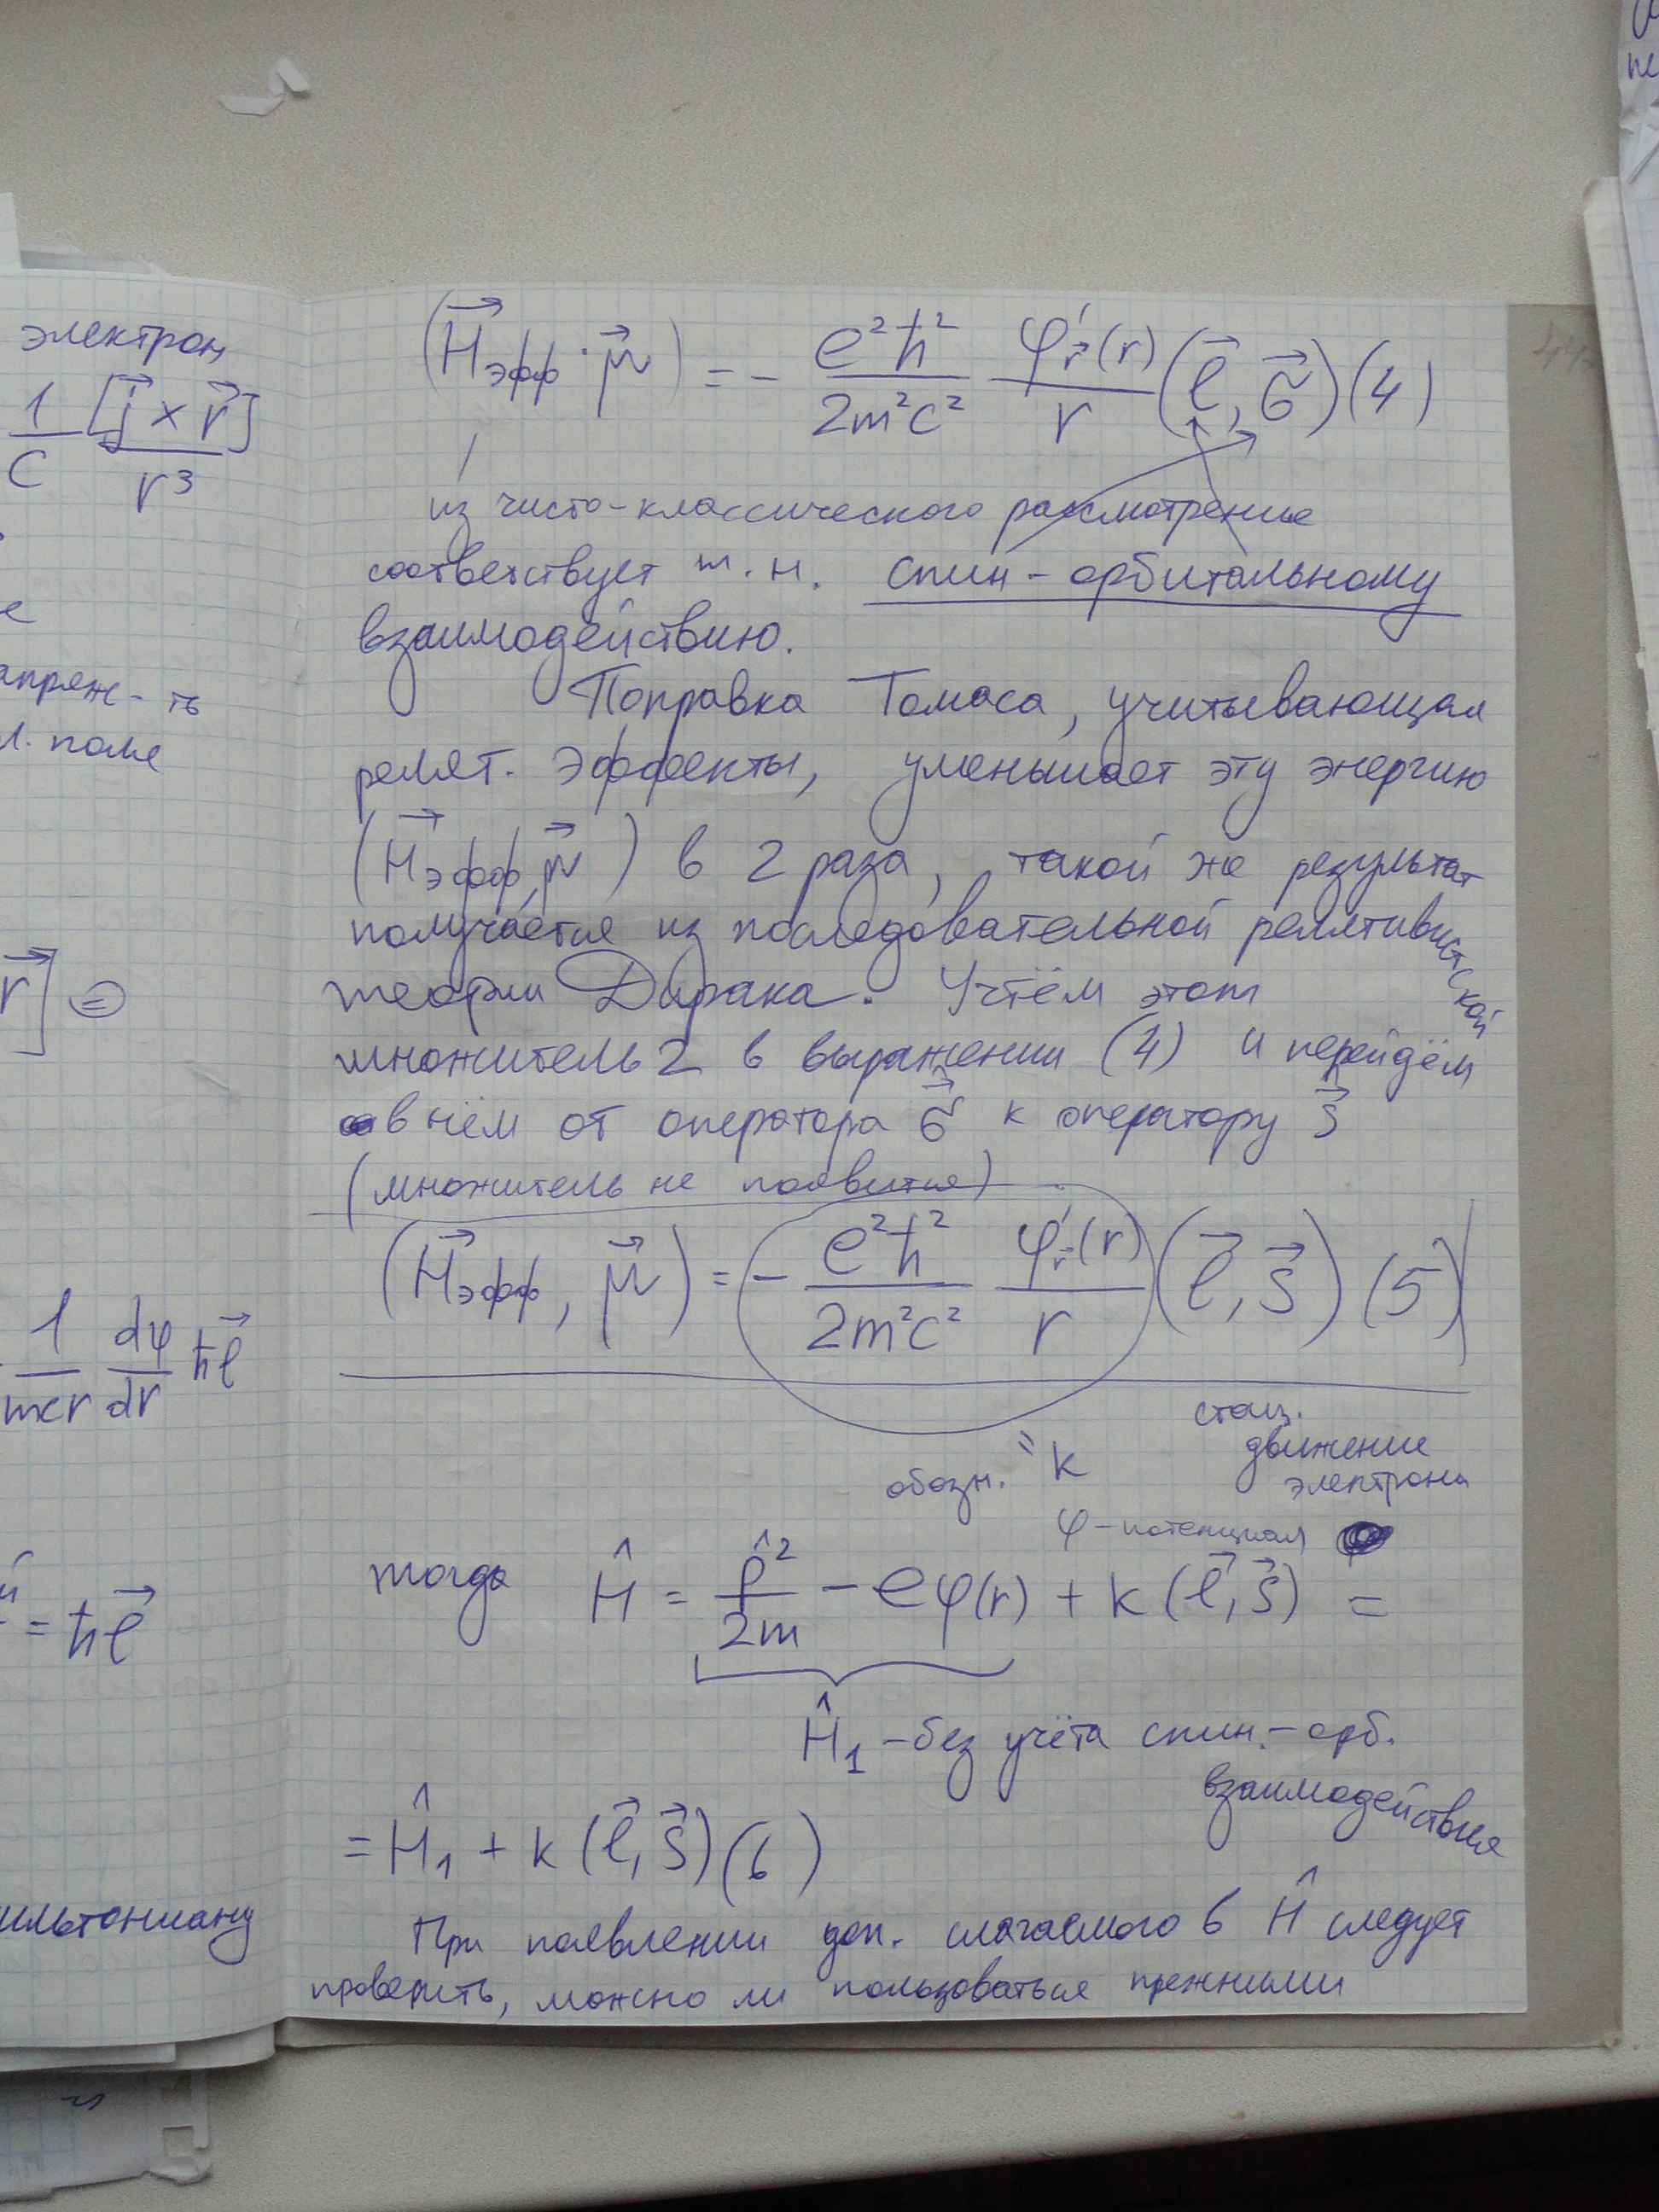 электрон
1/c [j⃗ × r⃗]/r³
е
апряж-ть
л. поле
r⃗] =
1/mcr dφ/dr ħl⃗
= ħl⃗
ильтониану
(H⃗эфф · μ⃗) = - e²ħ²/2m²c² φ'r(r)/r (l⃗, σ⃗) (4)
из чисто-классического рассмотрение
соответствует т. н. спин-орбитальному
взаимодействию.
Поправка Томаса, учитывающая
релят. эффекты, уменьшает эту энергию
(H⃗эфф, μ⃗) в 2 раза, такой же результат
получается из последовательной релятивистской
теории Дирака. Учтём этот
множитель 2 в выражении (4) и перейдём
в нём от оператора σ⃗ к оператору s⃗
(множитель не появится)
(H⃗эфф, μ⃗) = - e²ħ²/2m²c² φ'r(r)/r (l⃗, s⃗) (5)
обозн. " k
стац.
движение
электрона
φ-потенциал
тогда Ĥ = p̂²/2m - eφ(r) + k (l⃗, s⃗) =
Ĥ₁ - без учёта спин.-орб.
взаимодействия
= Ĥ₁ + k (l⃗, s⃗) (6)
При появлении доп. слагаемого в Ĥ следует
проверить, можно ли пользоваться прежними